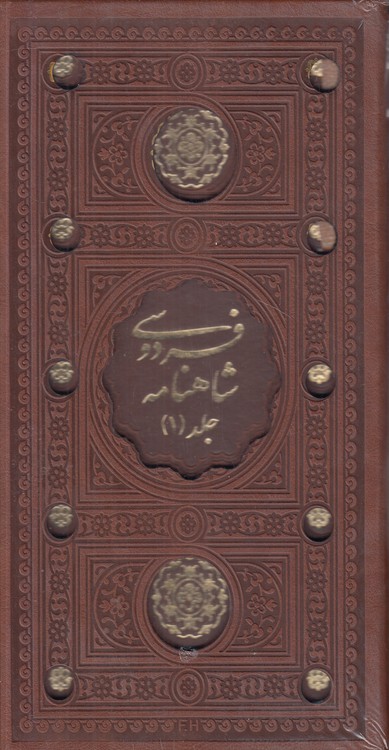 شاهنامه
فردوسی
جلد (۱)
FH